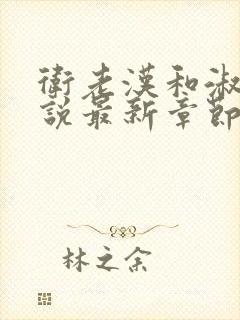 衛老漢和淑
說最新章節
林之余